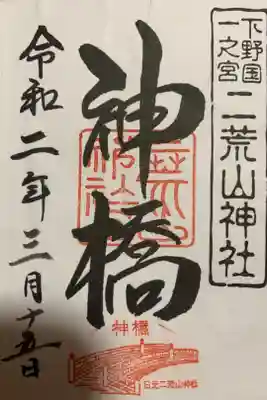 下野国
一之宮
二荒山神社
神橋
令和二年三月十五日
神橋
日光二荒山神社